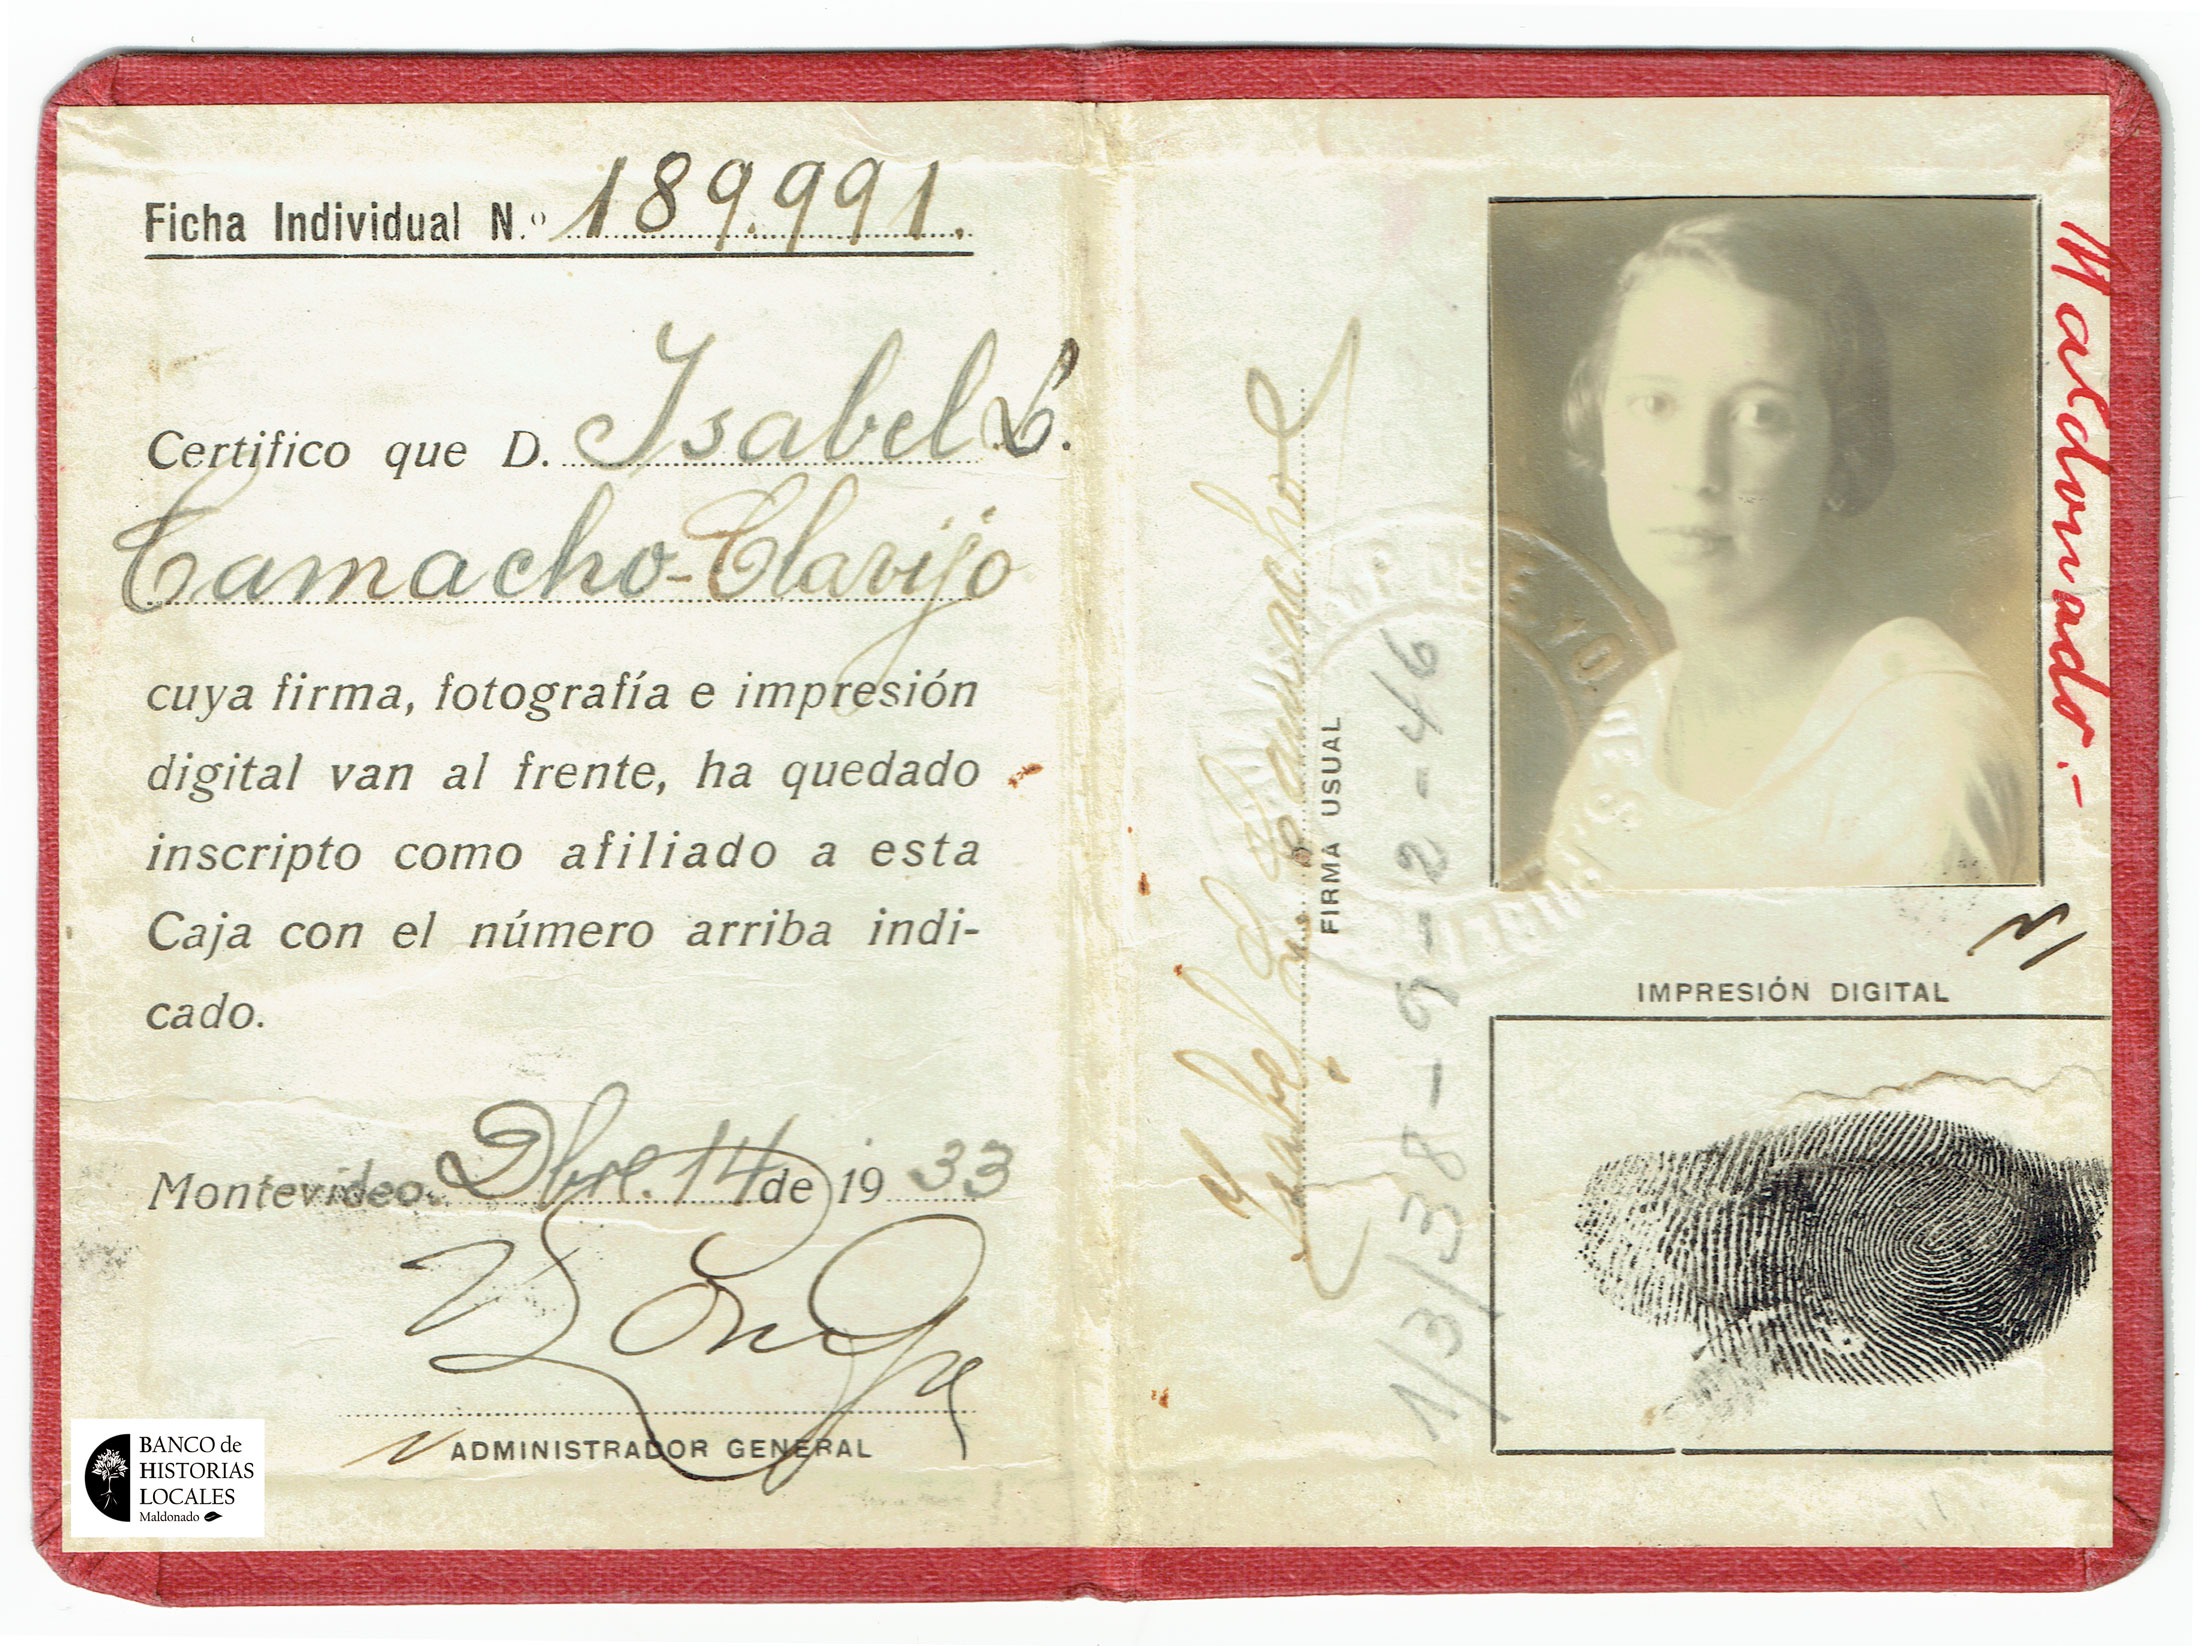 Ficha Individual N.º 189.991.
Certifico que D. Isabel L.
Camacho-Clavijo
cuya firma, fotografía e impresión
digital van al frente, ha quedado
inscripto como afiliado a esta
Caja con el número arriba indi-
cado.
Montevideo. Dbre. 14 de 1933
ADMINISTRADOR GENERAL
BANCO de
HISTORIAS
LOCALES
Maldonado
Isabel L Camacho
FIRMA USUAL
1/3/38-9-2-46
Maldonado.-
IMPRESIÓN DIGITAL